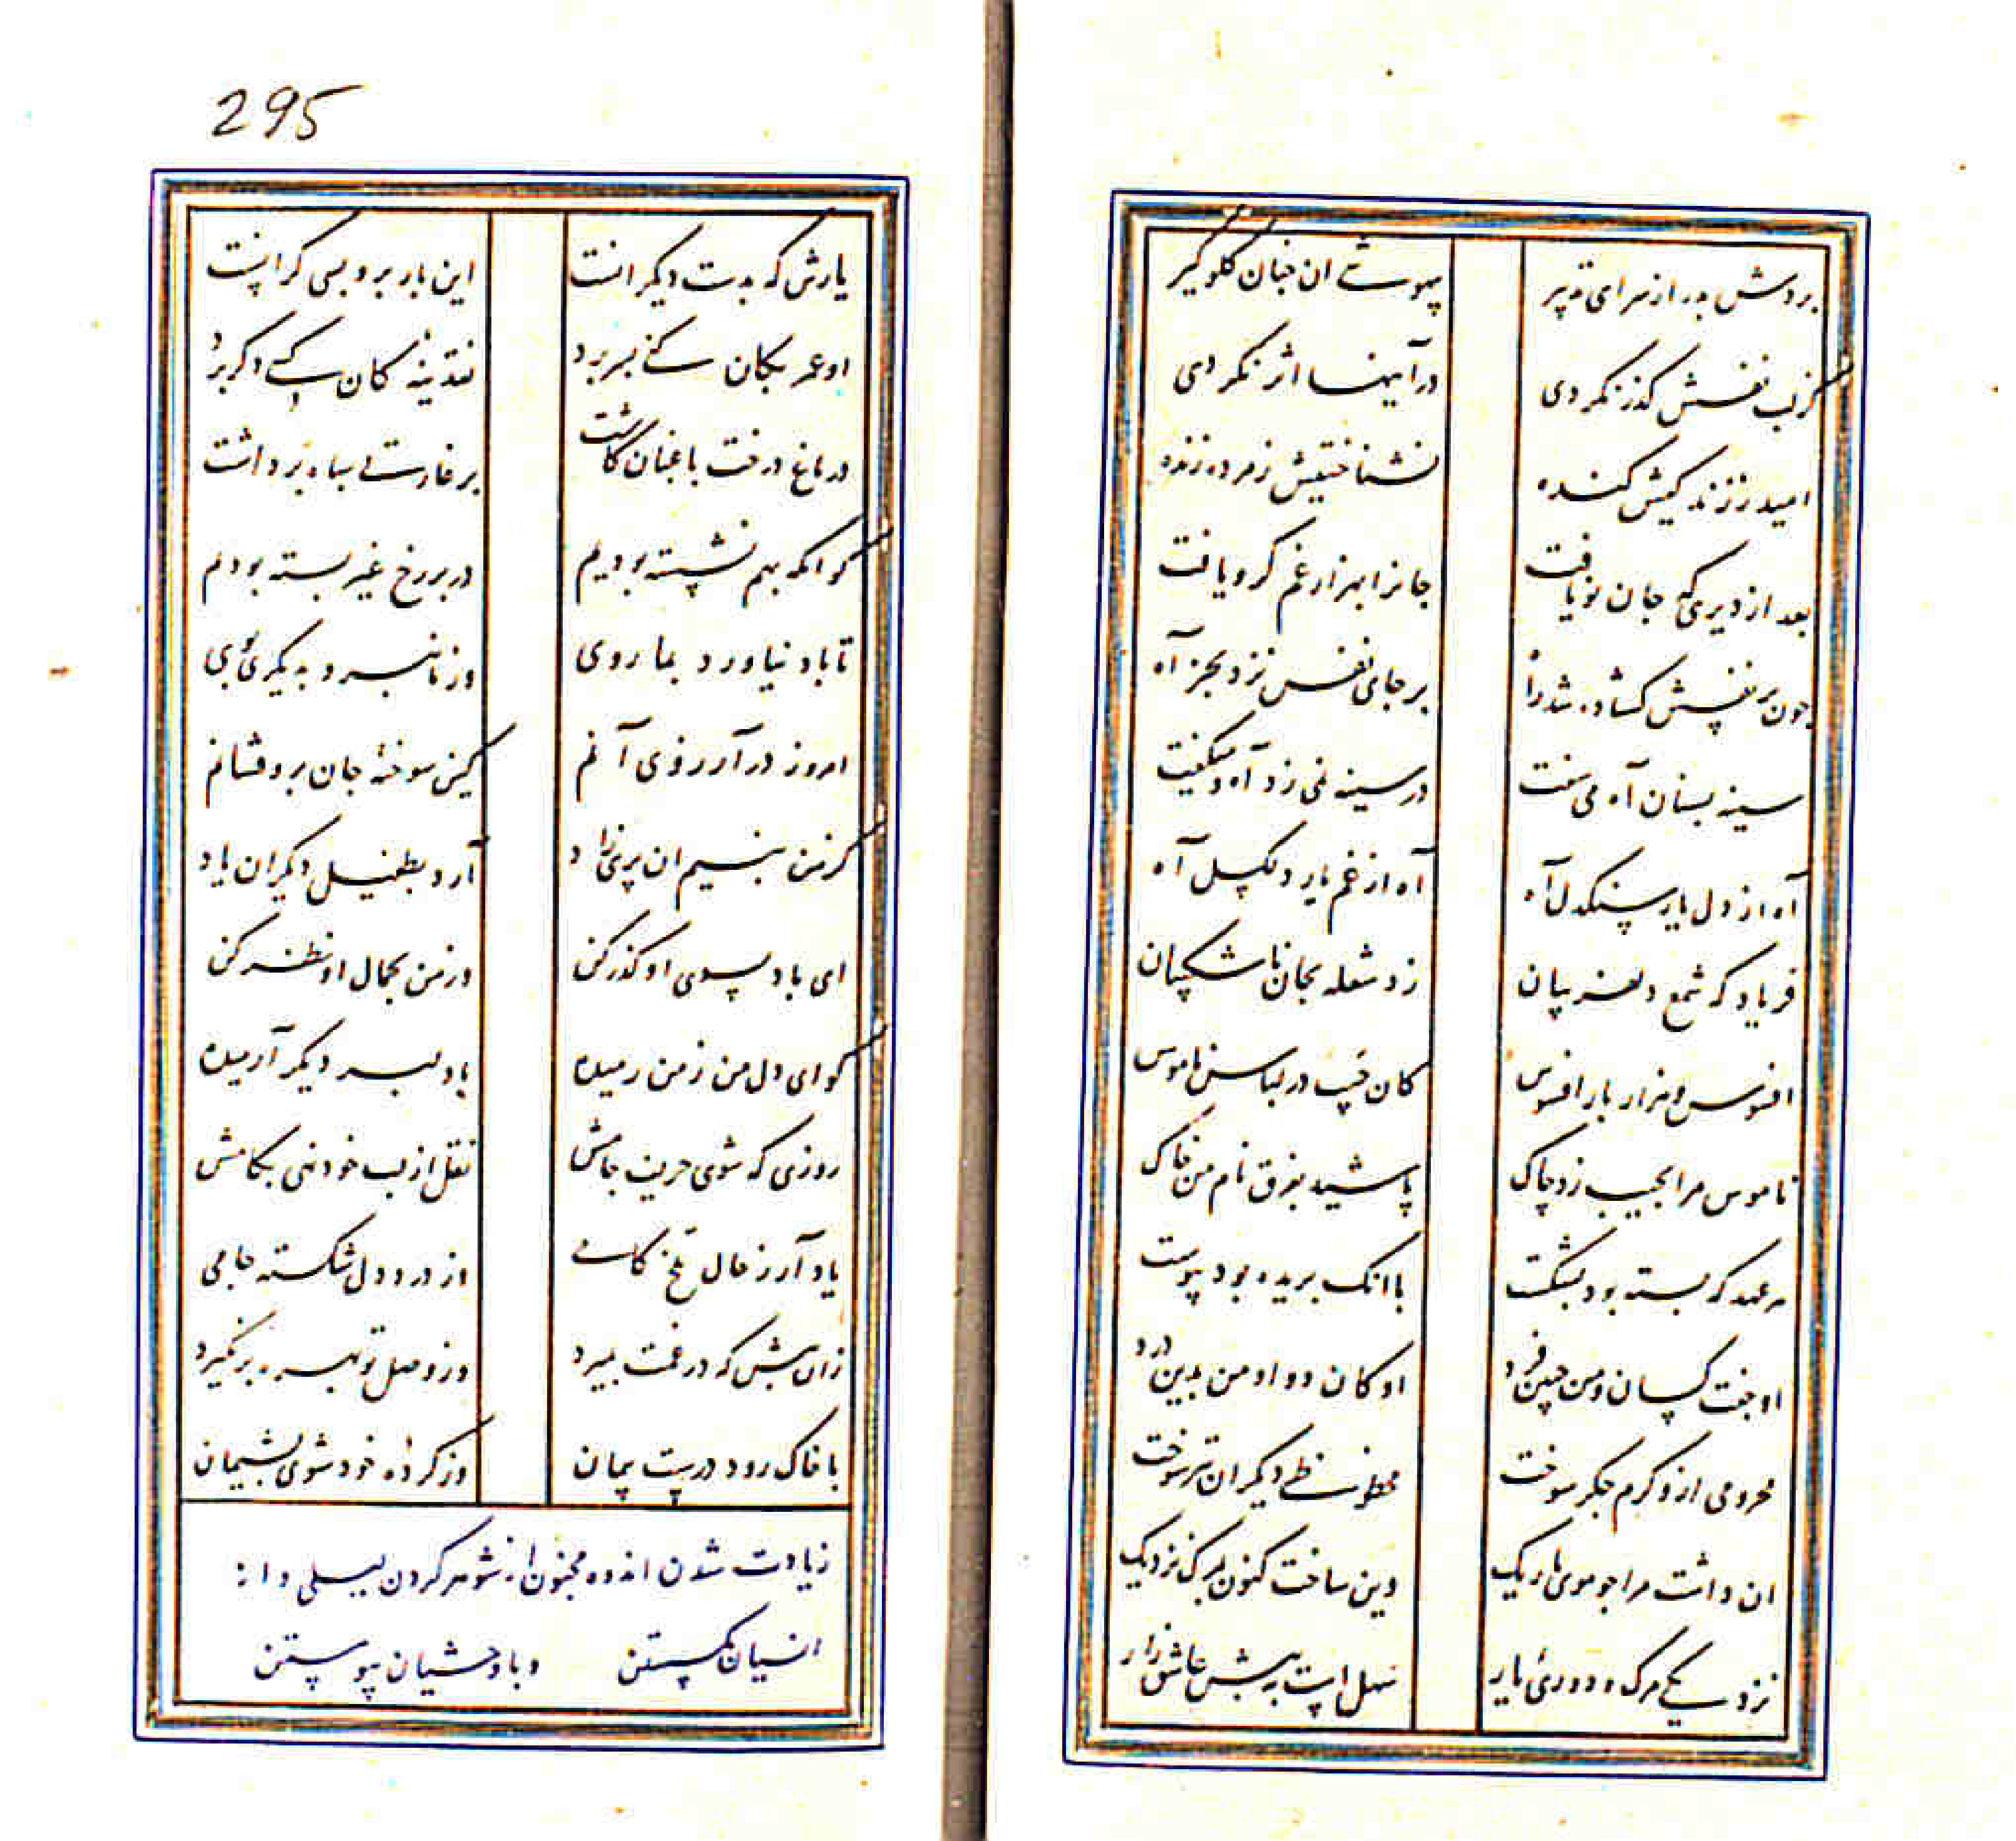 بردش بدر از سرای تدبیر
بیهوشی ان خیان کلوکیر
کز لب نفسش کذر نکردی
در آینها اثر نکردی
امید ز زندکیش کنده
نشناختیش ز مرده زنده
بعد از دیری که جان نو یافت
جانرا بهزار غم کرو یافت
چون بر نفسش کشاده شد راه
بر جای نفس نزد بجز آه
سینه بسنان آه می سفت
در سینه نمی زد آه و میکفت
آه از دل یار سنکدل آه
آه از غم یار دلکسل آه
فریاد که شمع دلفریبان
زد شعله بجان ناشکیبان
افسوس و هزار بار افسوس
کان در لباس ناموس
ناموس مرا بجیب زد چاک
پاشید بفرق نام من خاک
هر عهد که بسته بود بشکست
با انک بریده بود پیوست
او جفت کسان و من چنین فرد
او کان دوا و من بدین درد
محرومی از و کرم جکر سوخت
محظوظی دیکران بتر سوخت
ان داشت مرا جو موی باریک
وین ساخت کنون بمرک نزدیک
نزدیکی مرک و دوری یار
سهل است به پیش عاشق زار
295
یارش که بدست دیکرانست
این بار برو بسی کرانست
او عمر بکان کنی بسر برد
نقدینه کان کسی دکر برد
در باغ درخت باغبان کاشت
بر غارتی سپاه برداشت
کو انکه بهم نشسته بودیم
در بر رخ غیر بسته بودیم
تا باد نیاورد بما روی
وز ما نبرد به دیکری بوی
امروز در آرزوی آنم
کین سوخته جان برو فشانم
کز من بنسیم ان پریزاد
آرد بطفیل دیکران یاد
ای باد بسوی او کذر کن
وز من بجمال او نظر کن
کو ای دل من ز من رمیده
با دلبر دیکر آرمیده
روزی که شوی حریف جامش
نقل از لب خود نهی بکامش
یاد آر ز حال تلخ کامی
از درد دل شکسته جامی
زان پیش که در غمت بمیرد
وز وصل تو بهره بر نکیرد
با خاک رود درست پیمان
وز کرده خود شوی پشیمان
زیادت شدن اندوه مجنون از شوهر کردن لیلی و از
انسیان کسستن و با وحشیان پیوستن